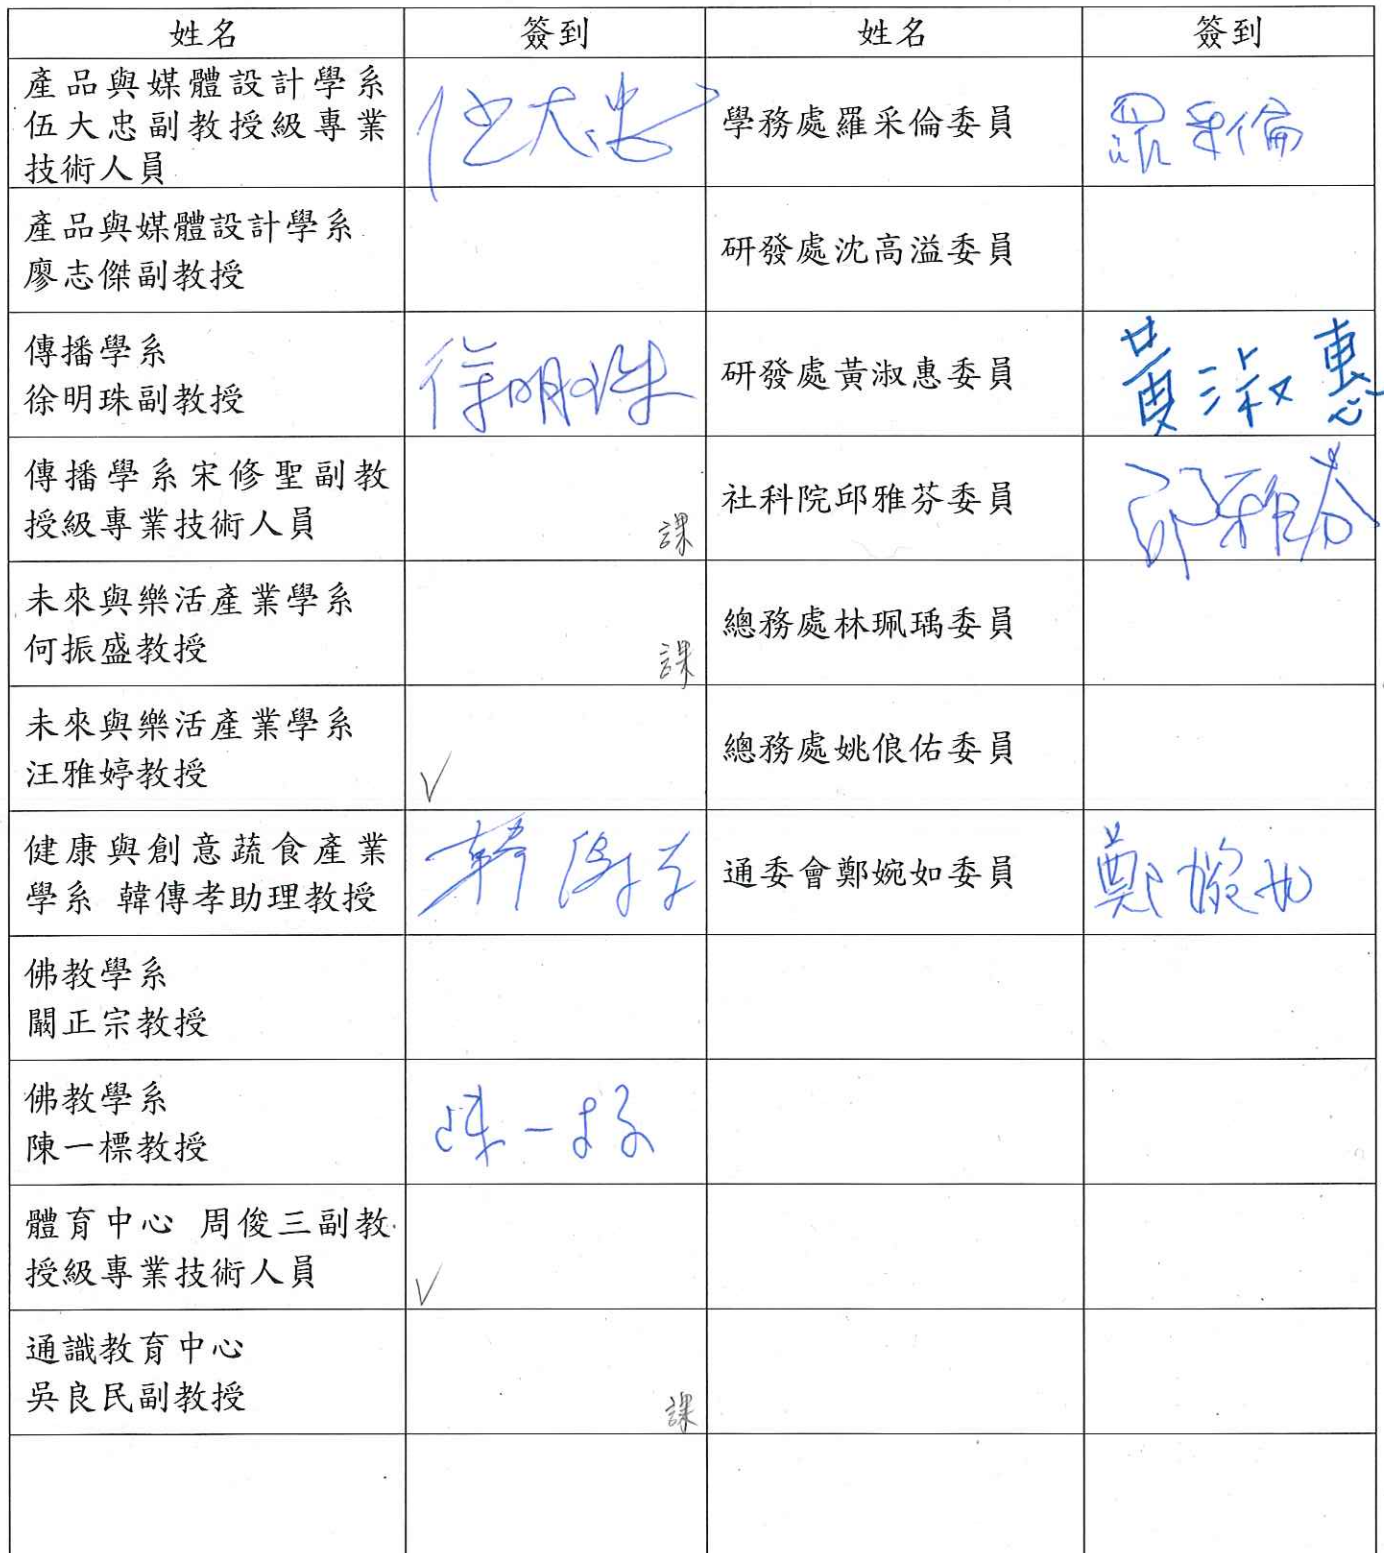 姓名 簽到 姓名 簽到
產品與媒體設計學系
伍大忠副教授級專業
技術人員
伍大忠
學務處羅采倫委員
羅采倫
產品與媒體設計學系
廖志傑副教授
研發處沈高溢委員
傳播學系
徐明珠副教授
徐明珠
研發處黃淑惠委員
黃淑惠
傳播學系宋修聖副教
授級專業技術人員
課
社科院邱雅芬委員
邱雅芬
未來與樂活產業學系
何振盛教授
課
總務處林珮瑀委員
未來與樂活產業學系
汪雅婷教授
✓
總務處姚俍佑委員
健康與創意蔬食產業
學系 韓傳孝助理教授
韓傳孝
通委會鄭婉如委員
鄭婉如
佛教學系
闞正宗教授
佛教學系
陳一標教授
陳一標
體育中心 周俊三副教
授級專業技術人員
✓
通識教育中心
吳良民副教授
課